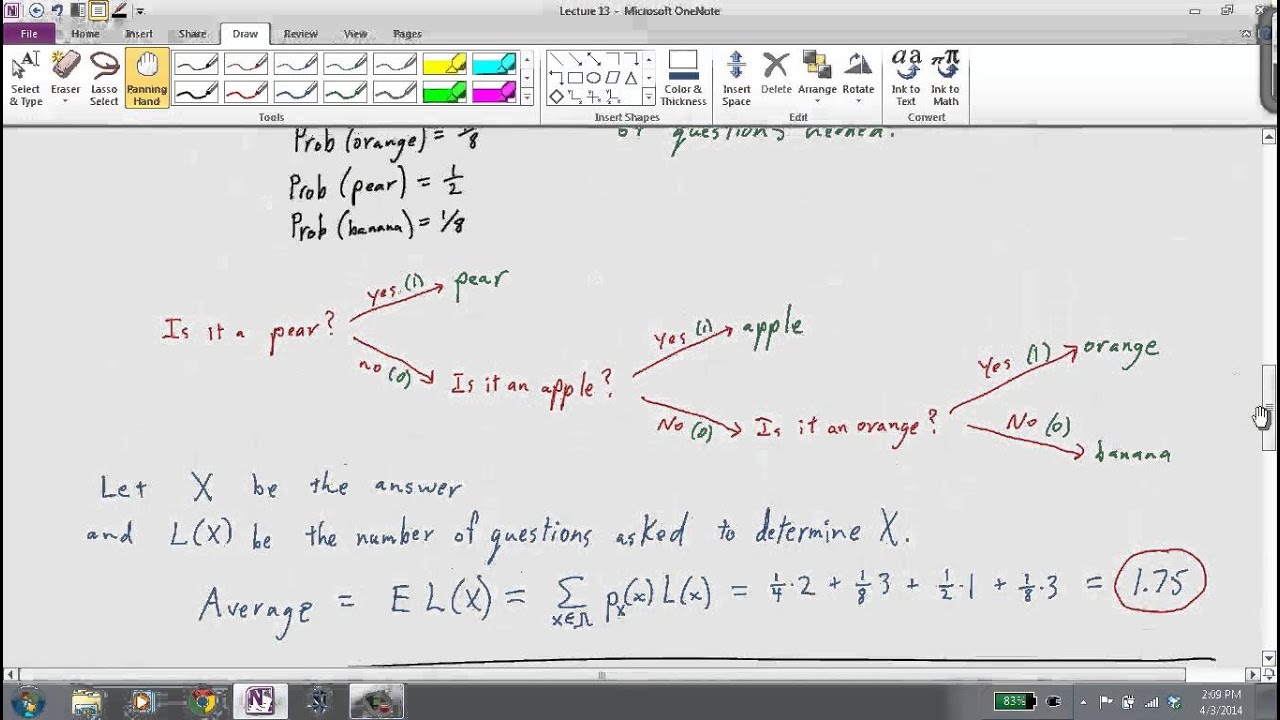 Lecture 13 - Microsoft OneNote
File Home Insert Share Draw Review View Pages
Select & Type Eraser Lasso Select Panning Hand Color & Thickness Insert Space Delete Arrange Rotate Ink to Text Ink to Math
Tools Insert Shapes Edit Convert
Prob (orange) = 1/8 of questions needed.
Prob (pear) = 1/2
Prob (banana) = 1/8
yes (1) pear
Is it a pear?
no (0)
yes (1) apple
Is it an apple?
No (0)
Yes (1) orange
Is it an orange?
No (0) banana
Let X be the answer
and L(X) be the number of questions asked to determine X.
Average = E L(X) = ∑ x∈Ω pₓ(x) L(x) = 1/4·2 + 1/8 3 + 1/2·1 + 1/8·3 = 1.75
83% 2:09 PM
4/3/2014